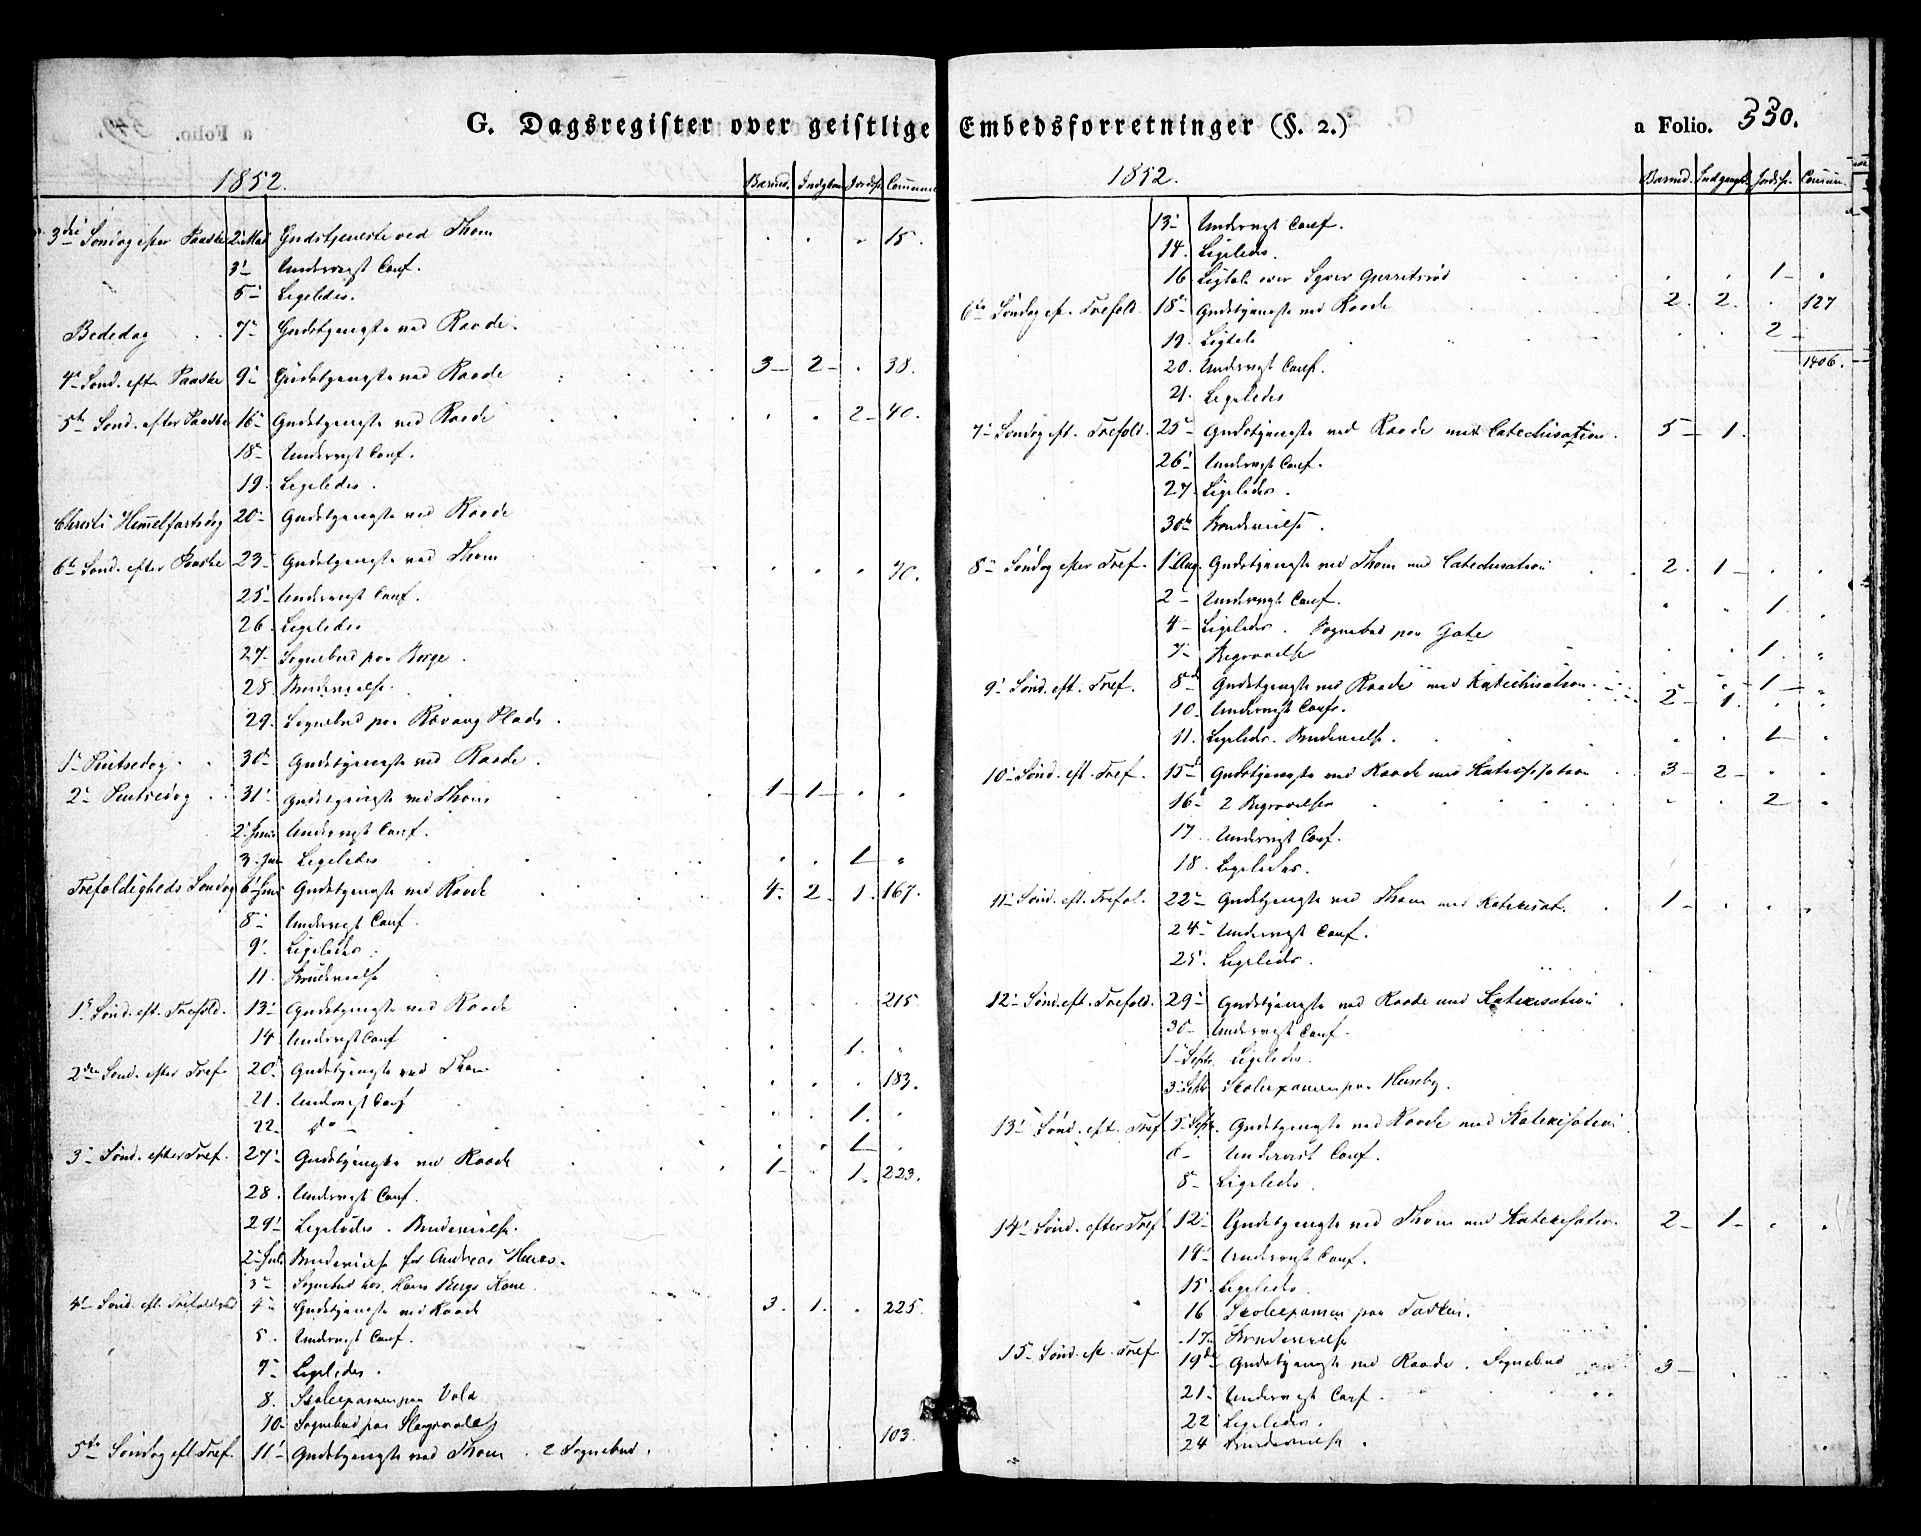 G. Dagsregister over geistlige Embedsforretninger (§. 2.)
a Folio. 350.
1852.
Barned. Indgtkon Jordsf. Commun
3die Søndag efter Paaske 2 Mai Gudstjeneste ved Thom 15.
3 Underviist Conf.
5 Ligeledes.
Bededag 7 Gudstjeneste ved Raade.
4 Sønd. efter Paaske 9 Gudstjeneste ved Raade 3 2 38.
5te Sønd. efter Paaske 16 Gudstjeneste ved Raade 2 40.
18 Underviist Conf.
19. Ligeledes.
Christi Himmelfartsdag 20 Gudstjeneste ved Raade
6te Sønd. efter Paaske 23 Gudstjeneste ved Thom 70.
25 Underviist Conf.
26. Ligeledes
27 Sognebud paa Borge.
28 Brudevielse.
29. Sognebud paa Plads.
1 Pintsedag 30 Gudstjeneste ved Raade.
2 Pintsedag 31 Gudstjeneste ved Thom 1 1
2 Juni Underviist Conf.
3. Juni Ligeledes 1
Trefoldigheds Søndag 6 Juni Gudstjeneste ved Raade 4. 2 1. 167.
8 Underviist Conf.
9. Ligeledes.
11. Brudevielse
1 Sønd. eft. Trefold. 13 Gudstjeneste ved Raade 215.
14 Underviist Conf 1.
2den Sønd. efter Tref. 20 Gudstjeneste ved Thom 183.
21. Underviist Conf 1.
22. do 1
3 Sønd. efter Tref. 27 Gudstjeneste ved Raade 1 1. 223.
28. Underviist Conf.
29 Ligeledes. Brudevielse.
2 Juli Brudevielse for Andreas
3 Sognebud hos Hans Bergs Kone.
4 Sønd. eft. Trefoldighed 4 Gudstjeneste ved Raade 3. 1. 225.
5. Underviist Conf.
7 Ligeledes.
8. Skoleexamen paa Vold
10 Sognebud paa
5te Søndag eft Tref. 11 Gudstjeneste ved Thom. 2 Sognebud. 103.
1852.
Barned. Indgangk. Jordsf. Commun.
13 Underviist Conf.
14. Ligeledes.
16 Ligtale over 1
6te Søndag ef. Trefold. 18 Gudstjeneste ved Raade 2. 2. 127
19. Ligtale 2
1406.
20. Underviist Conf.
21. Ligeledes
7 Søndag eft. Trefold. 25 Gudstjeneste ved Raade med Catechisation. 5 1.
26 Underviist Conf.
27. Ligeledes.
30te Brudevielse.
8 Søndag efter Tref. 1 Aug. Gudstjeneste ved Thom med Catechisation 2. 1
2 Underviist Conf. 1.
4 Ligeledes. Sognebud paa Gate
7 Begravelse 1.
9 Sønd. eft. Tref. 8de Gudstjeneste ved Raade med Katechisation. 1
10 Underviist Conf. 2 1.
11. Ligeledes. Brudevielse. 1
10 Sønd. eft. Tref. 15de Gudstjeneste ved Raade med Katechisation 3 2
16 2 Begravelser 2
17. Underviist Conf.
18. Ligeledes.
11 Sønd. eft. Trefol. 22 Gudstjeneste ved Thom med Katekisat. 1
24 Underviist Conf.
25. Ligeleds.
12 Sønd. eft. Trefold. 29 Gudstjeneste ved Raade med Katekisation
30 Underviist Conf.
1 Septr. Ligeledes.
3 Septr Skoleexamen paa Huseby.
13 Sønd. eft. Tref. 5 Septr. Gudstjeneste ved Raade med Katekisation
6 Underviist Conf.
8 Ligeledes
14 Sønd. efter Tref. 12 Gudstjeneste ved Thom med Katekisation 2 1
14 Underviist Conf.
15 Ligeledes.
16 Skoleexamen paa
17 Brudevielse
15 Sønd. eft. Tref. 19de Gudstjeneste ved Raade. Sognebud 3
21. Underviist Conf.
22 Ligeledes.
24 Brudevielse.